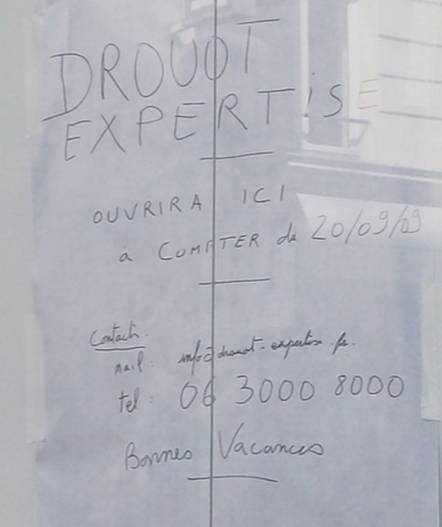 DROUOT
EXPERTISE
OUVRIRA ICI
à COMPTER du 20/09/09
Contacts.
mail: info@drouot-expertise.fr.
tel: 06 3000 8000
Bonnes Vacances